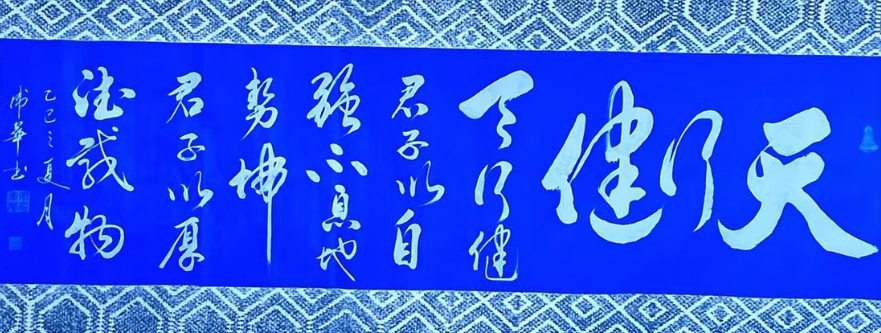 天行健
天行健
君子以自
强不息地
势坤
君子以厚
德载物
乙巳之夏月
华书